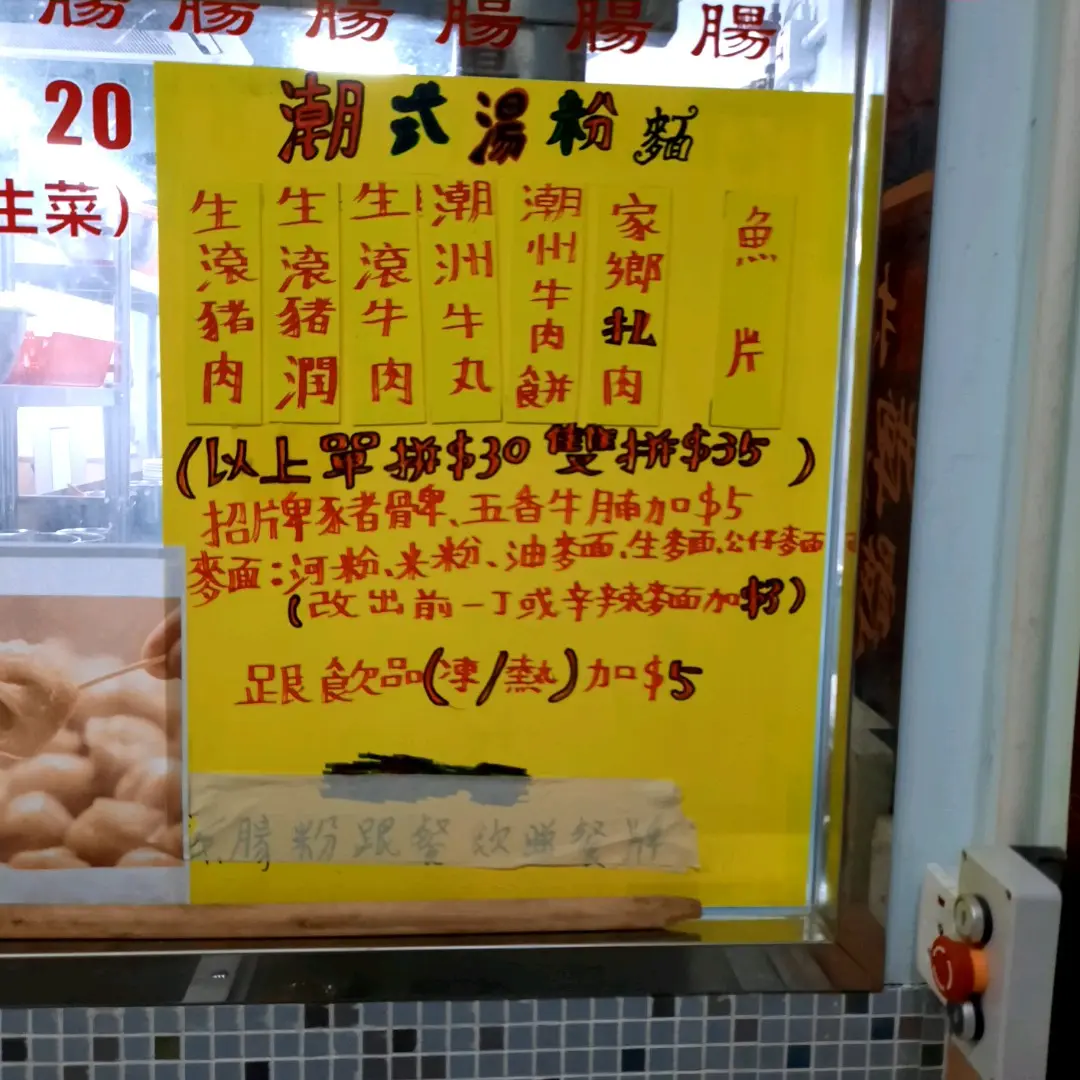 腸 腸 腸 腸 腸 腸
20
生菜)
潮式湯粉麵
生滾豬肉
生滾豬潤
生滾牛肉
潮洲牛丸
潮州牛肉餅
家鄉扎肉
魚片
(以上單拼$30 雙拼$35)
招牌豬髀、五香牛腩加$5
麥面:河粉、米粉、油麵、生麵、公仔麵
(改出前一丁或辛辣麵加$3)
跟飲品(凍/熱)加$5
腸粉跟餐